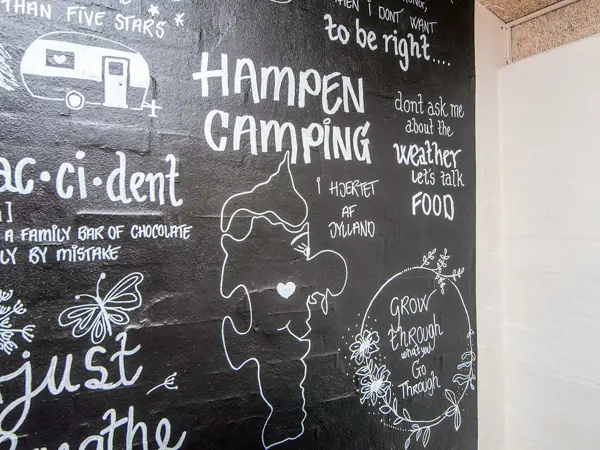 THAN FIVE STARS
WHEN I DON'T WANT
to be right....
HAMPEN
CAMPING
I HJERTET
AF
JYLLAND
dont ask me
about the
weather
let's talk
FOOD
ac·ci·dent
A FAMILY BAR OF CHOCOLATE
LY BY MISTAKE
GROW
through
what you
Go
Through
just
breathe